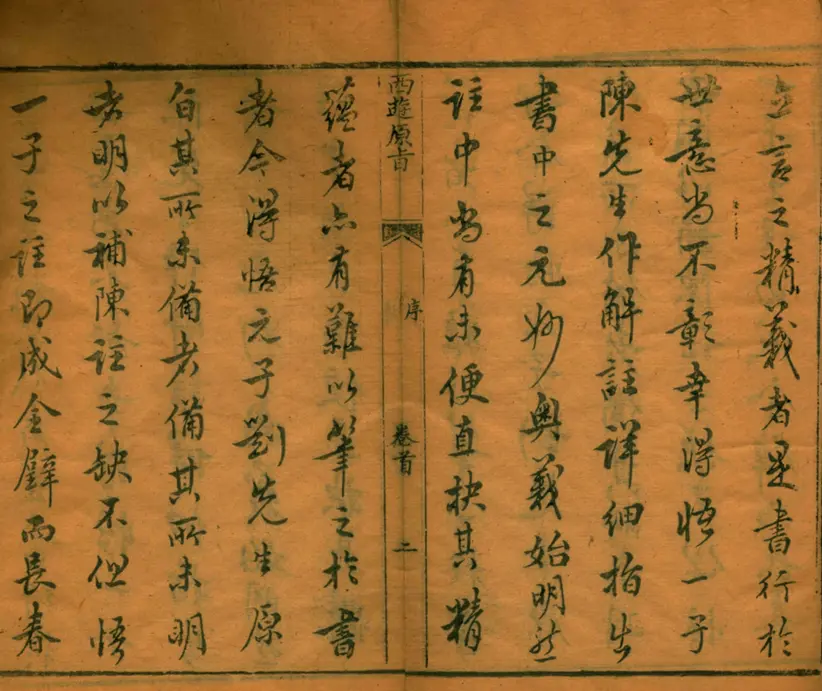 立言之精義者是書行於
世意尚不彰幸得悟一子
陳先生作解註詳細指出
書中之元妙奥義始明然
註中尚有未便直抉其精
西遊原旨 序 卷首 二
蘊者亦有難以筆之於書
者今得悟元子劉先生原
旨其所未備者備其所未明
者明以補陳註之缺不但悟
一子之註即成全璧而長春